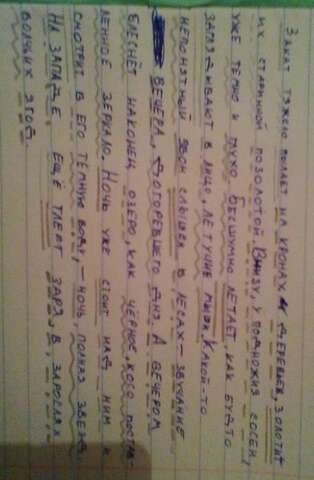 Закат тяжело пылает на кронах деревьев, золотит
их старинной позолотой. Внизу, у подножия сосен,
уже темно и глухо. Бесшумно летает, как будто
заглядывают в лицо, летучие мыши. Какой-то
непонятный звон слышен в лесах – звучание
вечера, догоревшего дня. А вечером
блеснёт наконец озеро, как чёрное, косо постав-
ленное зеркало. Ночь уже стоит над ним и
смотрит в его тёмную воду, – ночь, полная звезд.
На западе ещё тлеет заря, в зарослях
волчьих ягод